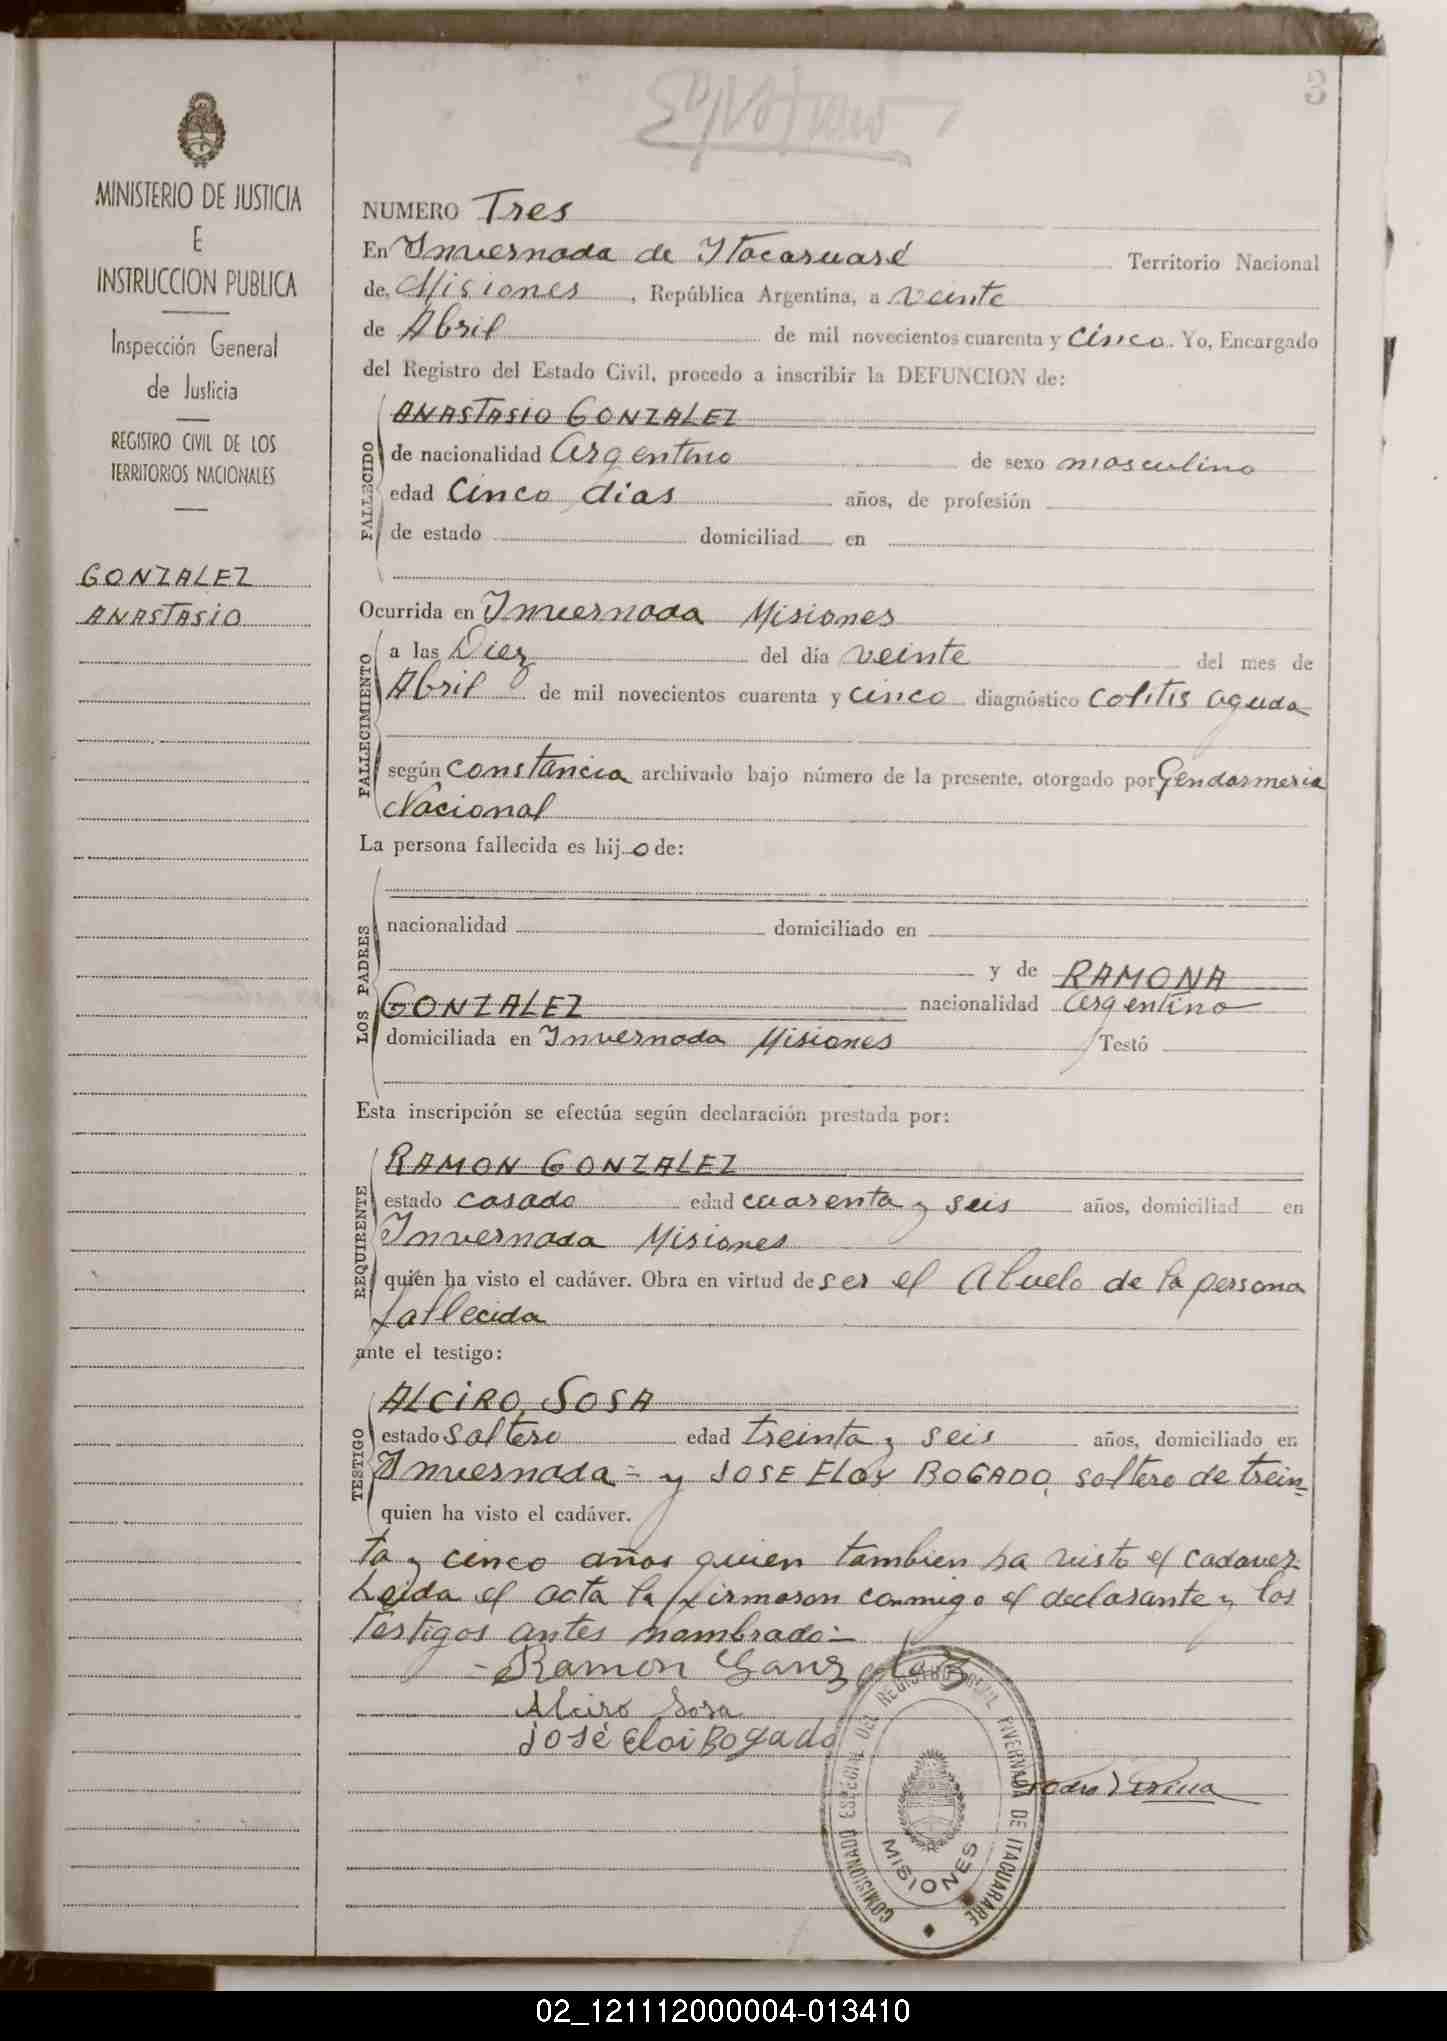 3
MINISTERIO DE JUSTICIA
E
INSTRUCCION PUBLICA
Inspección General
de Justicia
REGISTRO CIVIL DE LOS
TERRITORIOS NACIONALES
GONZALEZ
ANASTASIO
NUMERO Tres
En Invernada de Itacaruaré Territorio Nacional
de, Misiones, República Argentina, a veinte
de Abril de mil novecientos cuarenta y cinco. Yo, Encargado
del Registro del Estado Civil, procedo a inscribir la DEFUNCION de:
FALLECIDO
ANASTASIO GONZALEZ
de nacionalidad Argentino de sexo masculino
edad cinco dias años, de profesión
de estado domiciliad en
Ocurrida en Invernada Misiones
FALLECIMIENTO
a las Diez del día veinte del mes de
Abril de mil novecientos cuarenta y cinco diagnóstico colitis aguda
según constancia archivado bajo número de la presente, otorgado por Gendarmeria
Nacional
La persona fallecida es hijo de:
LOS PADRES
nacionalidad domiciliado en
y de RAMONA
GONZALEZ nacionalidad argentino
domiciliada en Invernada Misiones Testó
Esta inscripción se efectúa según declaración prestada por:
REQUIRENTE
RAMON GONZALEZ
estado casado edad cuarenta y seis años, domiciliad en
Invernada Misiones
quién ha visto el cadáver. Obra en virtud de ser el Abuelo de la persona
fallecida
ante el testigo:
TESTIGO
ALCIRO SOSA
estado soltero edad treinta y seis años, domiciliado en
Invernada = y JOSE ELOY BOGADO, soltero de trein=
quien ha visto el cadáver.
ta y cinco años quien tambien ha visto el cadavez-
Leida el acta la firmaron conmigo el declarante y los
Testigos antes nombrado-
- Ramon Gonzalez
Alciro Sosa
José Eloi Bogado
COMISIONADO ESPECIAL DEL REGISTRO CIVIL INVERNADA DE ITACUARARE
MISIONES
02_121112000004-013410